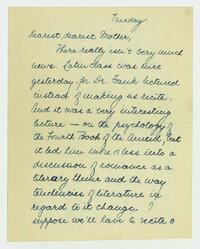 Tuesday
Dearest, dearest Mother,
There really isn't very much
news. Latin class was nice
yesterday, for Dr. Frank lectured
instead of making us recite.
And it was a very interesting
lecture — on the psychology of
the Fourth Book of the Aeneid, but
it led him more or less into a
discussion of romance as a
literary theme and the way
tendencies of literature in
regard to it change. I
suppose we'll have to recite